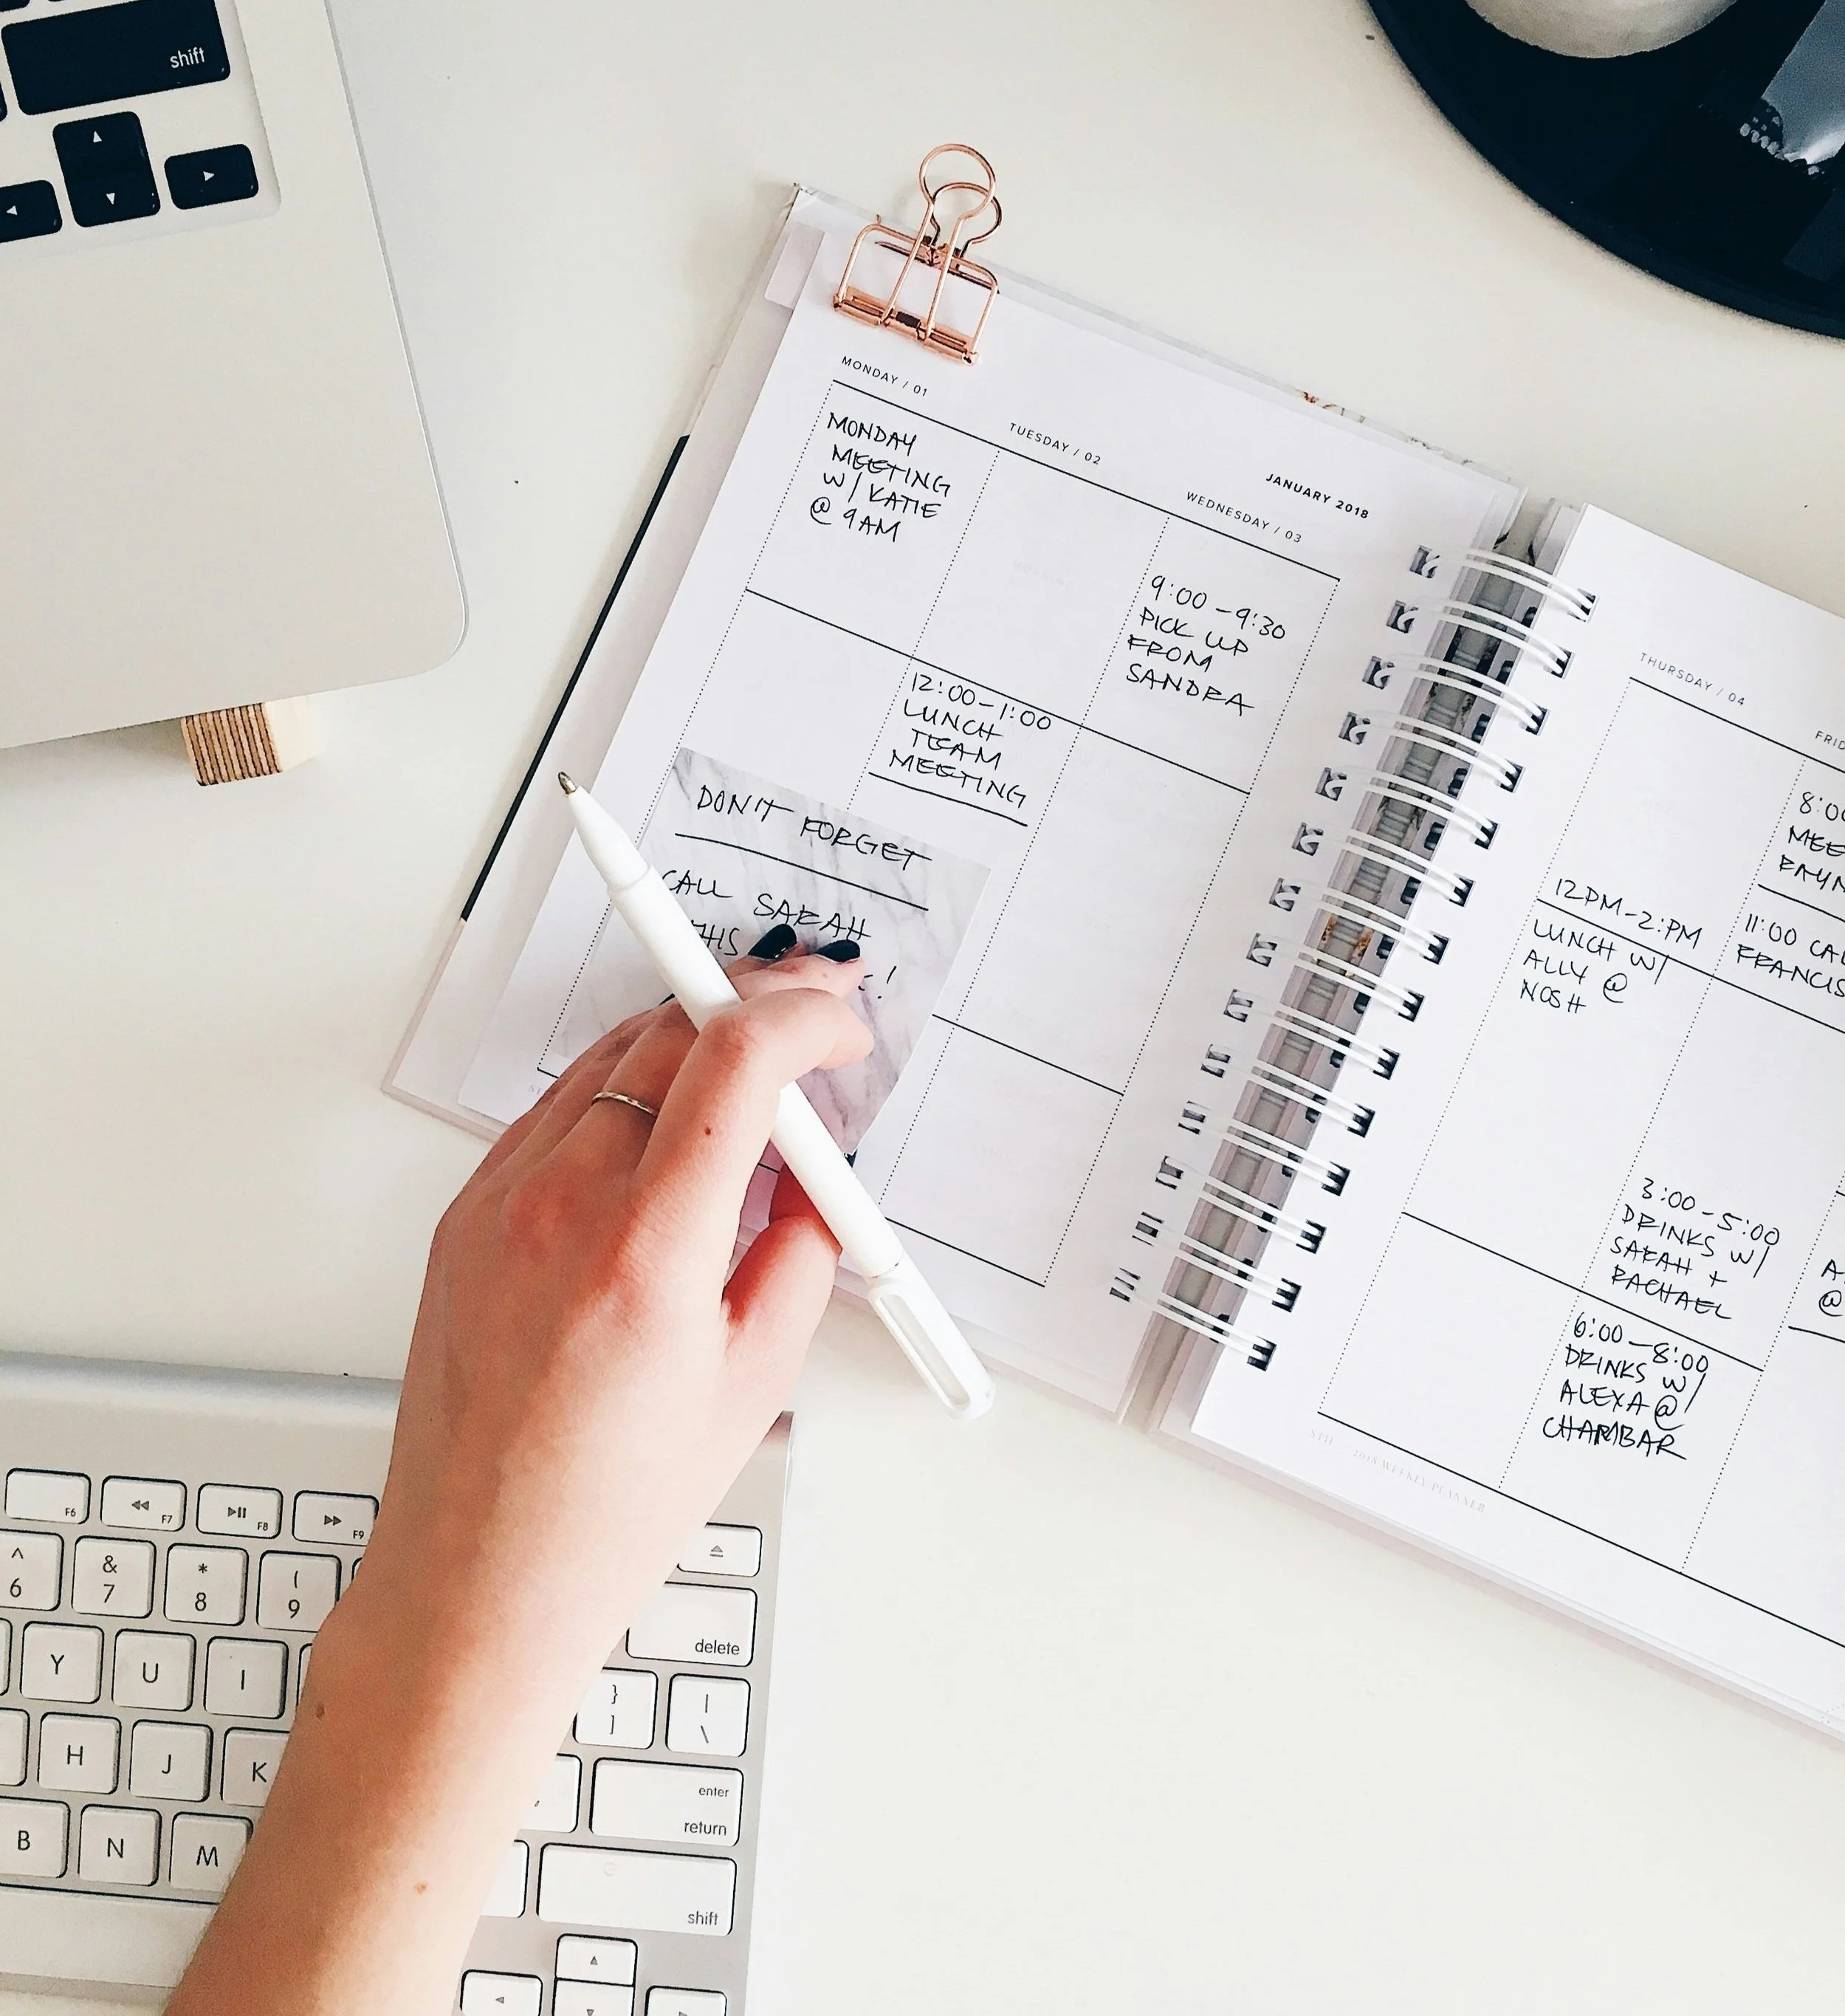 shift
MONDAY / 01
TUESDAY / 02
JANUARY 2018
WEDNESDAY / 03
MONDAY
MEETING
W/ KATIE
@ 9AM
12:00-1:00
LUNCH
TEAM
MEETING
9:00-9:30
PICK UP
FROM
SANDRA
DON'T FORGET
CALL SARAH
THURSDAY / 04
12PM-2:PM
LUNCH W/
ALLY @
NOSH
8:00
11:00
FRANCIS
3:00-5:00
DRINKS W/
SARAH +
RACHAEL
6:00-8:00
DRINKS W/
ALEXA @
CHAMBAR
2018 WEEKLY PLANNER
F6
F7
F8
F9
^ & * (
6 7 8 9
delete
Y U I
} |
] \
H J K
enter
return
B N M
shift